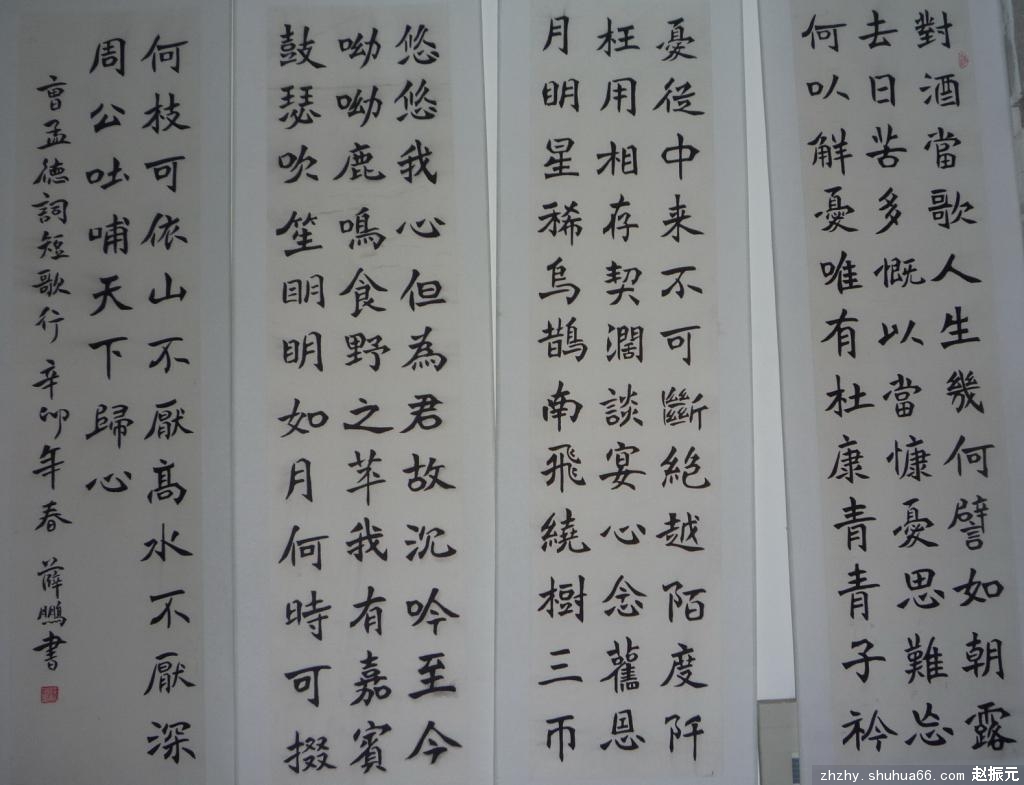 對酒當歌人生幾何譬如朝露
去日苦多慨以當慷憂思難忘
何㕥觧憂唯有杜康青青子衿
憂從中来不可斷絕越陌度阡
枉用相存契濶談宴心念舊恩
月明星稀烏鵲南飛繞樹三帀
悠悠我心但為君故沉吟至今
呦呦鹿鳴食野之苹我有嘉賓
鼓瑟吹笙明明如月何時可掇
何枝可依山不厭髙水不厭深
周公吐哺天下歸心
曹孟德詞短歌行辛卯年春 薛鵬書
zhzhy.shuhua66.com 赵振元